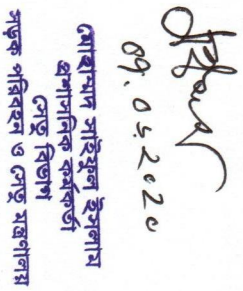 ০৭.০১.২০২০
মোহাম্মদ সাইফুল ইসলাম
প্রশাসনিক কর্মকর্তা
সেতু বিভাগ
সড়ক পরিবহন ও সেতু মন্ত্রণালয়